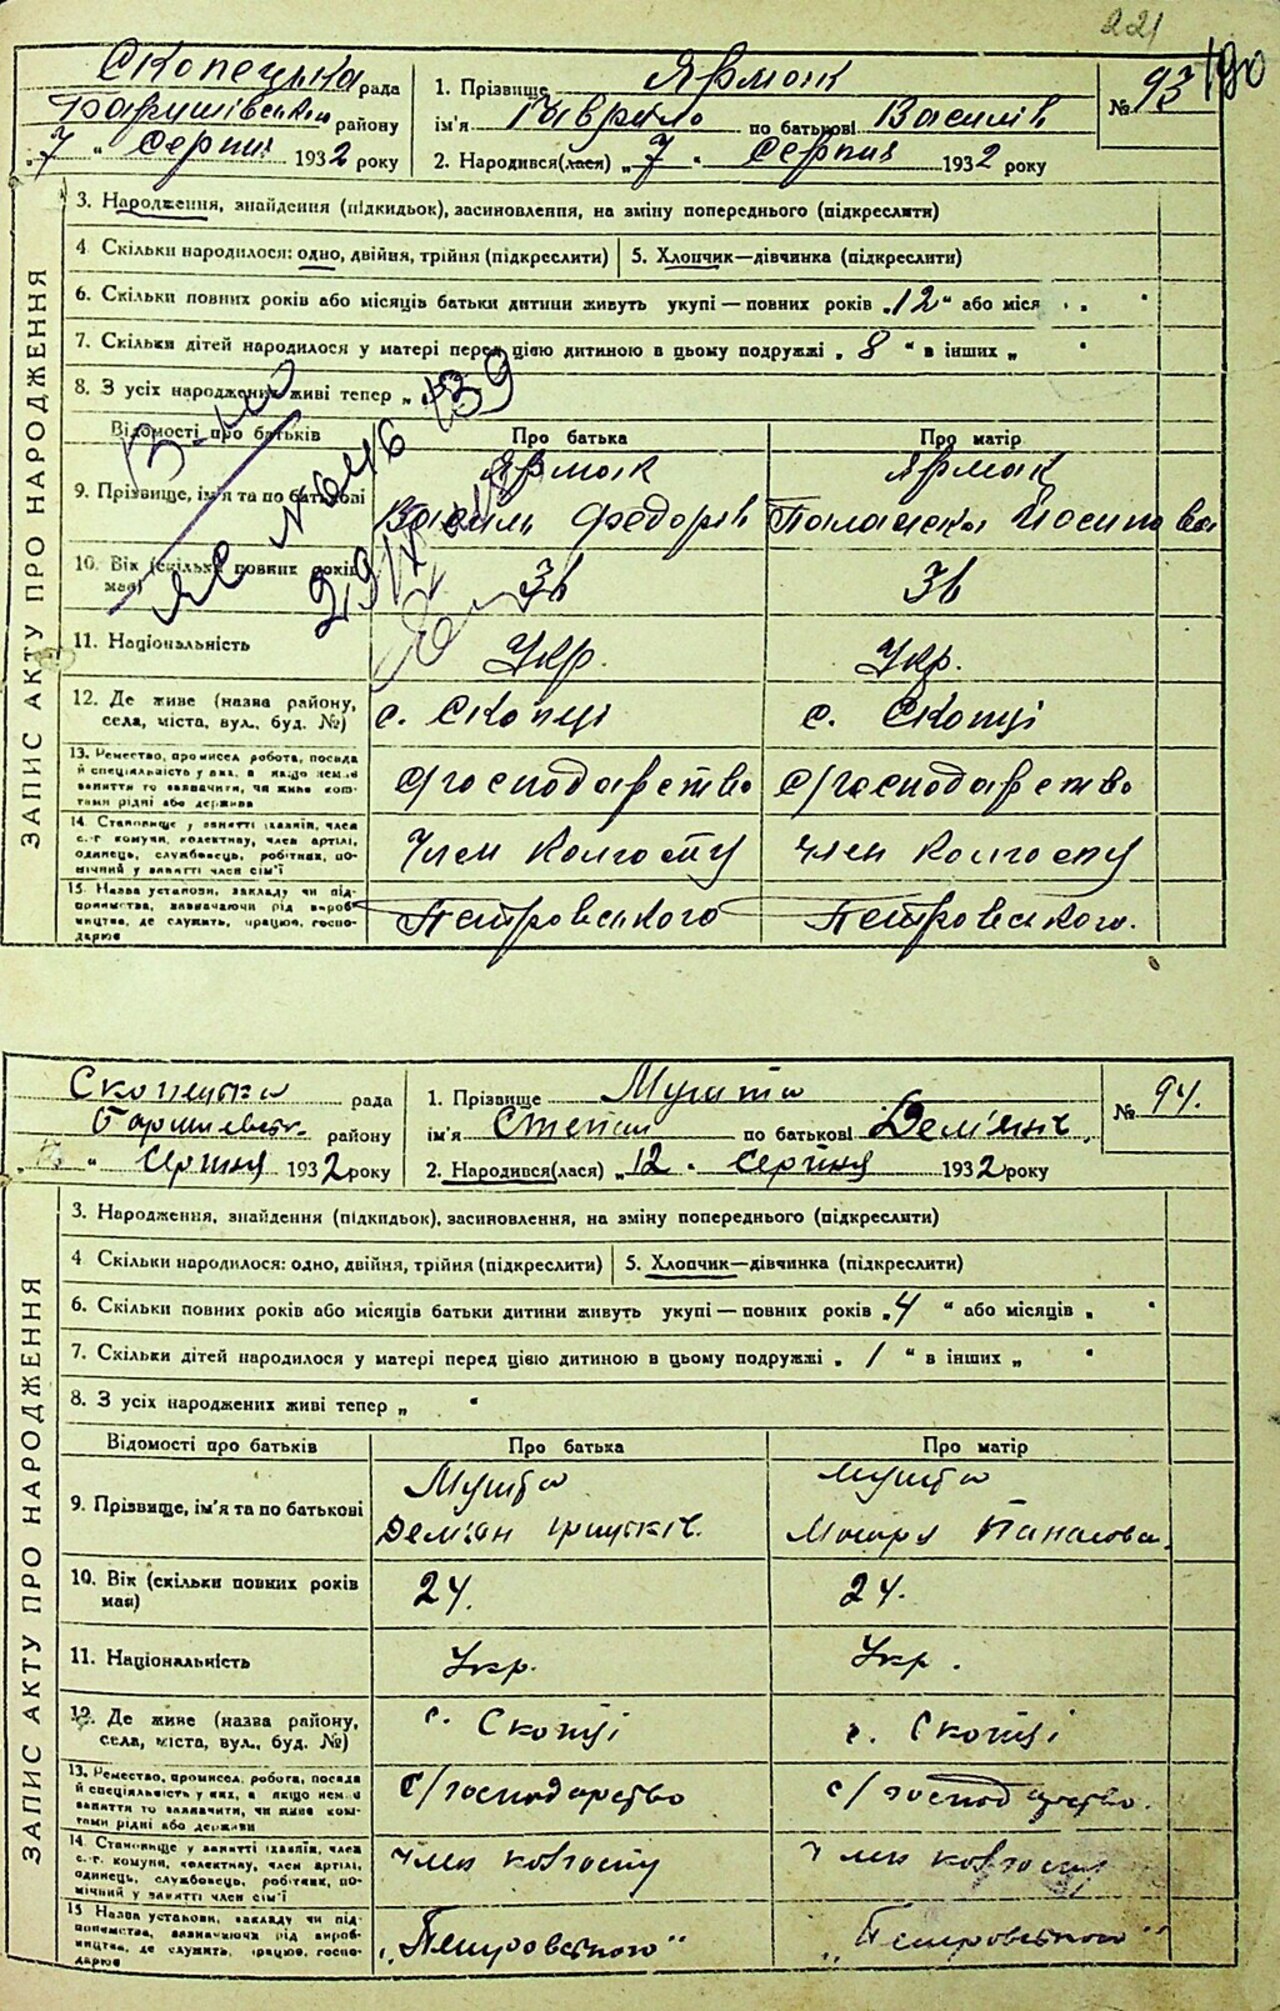 221
190
Скопецька рада
Баришівський району
„7“ Серпня 1932 року
1. Прізвище Ярмак
ім'я Гаврило по батькові Василів
2. Народився(лася) „7“ Серпня 1932 року
№ 93
ЗАПИС АКТУ ПРО НАРОДЖЕННЯ
3. Народження, знайдення (підкидьок), засиновлення, на зміну попереднього (підкреслити)
4 Скільки народилося: одно, двійня, трійня (підкреслити) 5. Хлопчик—дівчинка (підкреслити)
6. Скільки повних років або місяців батьки дитини живуть укупі — повних років „12“ або міся
7. Скільки дітей народилося у матері перед цією дитиною в цьому подружжі „8“ в інших „ “
8. З усіх народжених живі тепер „
Відомості про батьків Про батька Про матір
9. Прізвище, ім'я та по батькові Ярмак Ярмак
Василь Федорів Палажка Йосипова
10. Вік (скільки повних років має) 36 36
11. Національність Укр. Укр.
12. Де живе (назва району, села, міста, вул., буд. №) с. Скопці с. Скопці
13. Ремество, промисел, робота, посада й спеціяльність у них, а якщо немає заняття то зазначити, чи живе коштами рідні або держави с/господарство с/господарство
14. Становище у занятті хазяїн, член с.-г. комуни, колективу, член артілі, одинець, службовець, робітник, помічний у занятті член сім'ї Член колгоспу член колгоспу
15. Назва установи, закладу чи підприємства, зазначаючи рід виробництва, де служить, працює, господарює Петровського Петровського.
Скопецька рада
району
Серпня 1932 року
1. Прізвище Мушта
ім'я Степан по батькові Дем'янів
2. Народився(лася) „12“ серпня 1932 року
№ 94.
ЗАПИС АКТУ ПРО НАРОДЖЕННЯ
3. Народження, знайдення (підкидьок), засиновлення, на зміну попереднього (підкреслити)
4 Скільки народилося: одно, двійня, трійня (підкреслити) 5. Хлопчик—дівчинка (підкреслити)
6. Скільки повних років або місяців батьки дитини живуть укупі — повних років „4“ або місяців „ “
7. Скільки дітей народилося у матері перед цією дитиною в цьому подружжі „1“ в інших „ “
8. З усіх народжених живі тепер „ “
Відомості про батьків Про батька Про матір
9. Прізвище, ім'я та по батькові Мушта Мушта
Дем'ян Панасова
10. Вік (скільки повних років має) 24. 24.
11. Національність Укр. Укр.
12. Де живе (назва району, села, міста, вул., буд. №) с. Скопці с. Скопці
13. Ремество, промисел, робота, посада й спеціяльність у них, а якщо немає заняття то зазначити, чи живе коштами рідні або держави с/господарство с/господарство.
14. Становище у занятті хазяїн, член с.-г. комуни, колективу, член артілі, одинець, службовець, робітник, помічний у занятті член сім'ї член колгоспу член колгоспу
15 Назва установи, закладу чи підприємства, зазначаючи рід виробництва, де служить, працює, господарює „Петровського“ „Петровського“